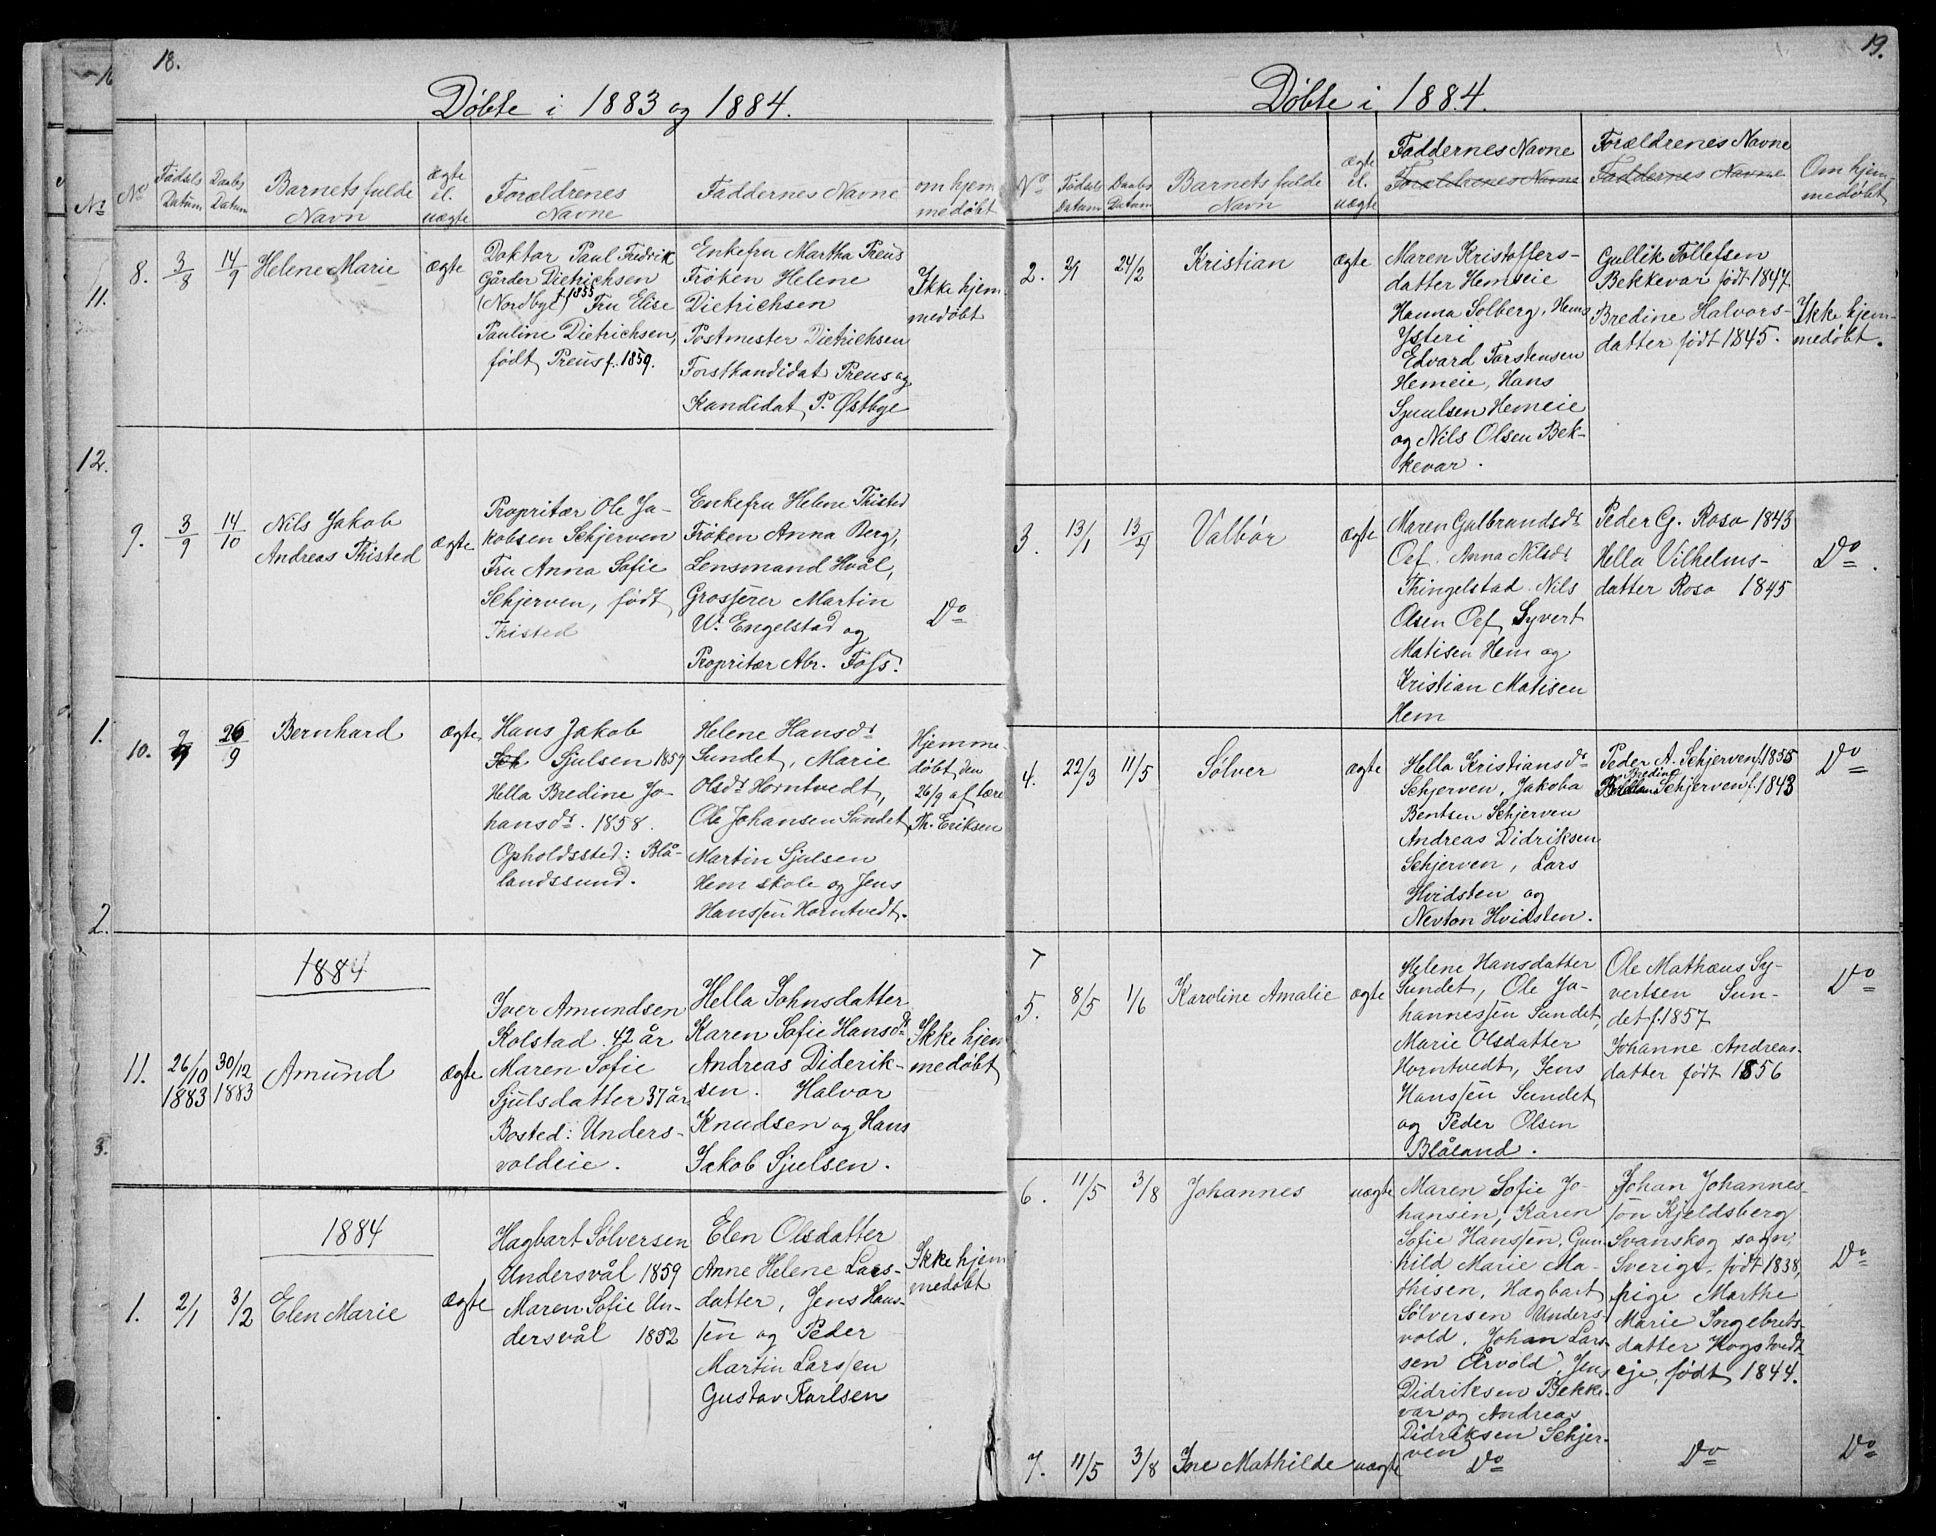 18.
Døbte i 1883 og 1884.
No
Fødsels Datum
Daabs Datum
Barnets fulde Navn
ægte el. uægte
Forældrenes Navne
Faddernes Navne
om hjem medøbt
8.
3/8
14/9
Helene Marie
ægte
Doktor Paul Fredrik
Gårder Dietrichsen
(Nordbye) f. 1855 Fru Elise
Pauline Dietrichsen,
født Preus f. 1859.
Enkefru Martha Preus
Frøken Helene
Dietrichsen
Postmester Dietrichsen
Forstkandidat Preus og
Kandidat P. Østbye
Ikke hjem
medøbt
9.
3/9
14/10
Nils Jakob
Andreas Thisted
ægte
Propritær Ole Ja-
kobsen Schjerven
Fru Anna Sofie
Schjerven, født
Thisted
Enkefru Helene Thisted
Frøken Anna Berg,
Lensmand Hvål,
Grosserer Martin
W. Engelstad og
Propritær Abr. Foss.
Do
10.
26/9
Bernhard
ægte
Hans Jakob
Sjulsen 1859
Hella Bredine Jo-
hansdr. 1858.
Opholdssted: Blå-
landssund.
Helene Hansdr
Sundet, Marie
Olsdr Horntvedt,
Ole Johansen Sundet
Martin Sjulsen
Hem skole og Jens
Hanssen Horntvedt.
Hjemme
døbt den
26/9 af lære
Th. Eriksen
1884
11.
26/10 1883
30/12 1883
Amund
ægte
Iver Amundsen
Kolstad 42 år
Maren Sofie
Sjulsdatter 37 år
Bosted: Unders-
voldeie.
Hella Johnsdatter
Karen Sofie Hansdr
Andreas Diderik-
sen. Halvor
Knudsen og Hans
Jakob Sjulsen.
Ikke hjem
medøbt
1884
1.
2/1
3/2
Elen Marie
ægte
Hagbart Sølversen
Undersvål 1859
Maren Sofie Un-
dersvål 1852
Elen Olsdatter
Anne Helene Lars-
datter, Jens Hans-
sen og Peder
Martin Larssen
Gustav Karlsen
Ikke hjem
medøbt
No
11.
12.
1.
2.
3.
19.
Døbte i 1884.
No
Fødsels Datum
Daabs Datum
Barnets fulde Navn
ægte el. uægte
Faddernes Navne
Forældrenes Navne
Forældrenes Navne
Faddernes Navne
Om hjem-
medøbt
2.
2/1
24/2
Kristian
ægte
Maren Kristoffers-
datter Hemseie
Hanna Solberg, Hems
Ysteri
Edvard Torstensen
Hemeie, Hans
Sjuulsen Hemeie
og Nils Olsen Bek-
kevar.
Gullik Tollefsen
Bekkevar født 1847.
Bredine Halvors-
datter født 1845.
Ikke hjem-
medøbt.
3.
13/1
13/4
Valbor
ægte
Maren Gulbrandsdr
Oef. Anna Nilsdr
Thingelstad. Nils
Olsen Oef, Syvert
Matisen Hem og
Kristian Matisen
Hem
Peder G. Roso 1843
Hella Vilhelms-
datter Roso 1845
Do.
4.
22/3
11/5
Sølver
ægte
Hella Kristiansdr
Schjerven, Jakoba
Bentsen Schjerven
Andreas Didriksen
Schjerven, Lars
Hvidsten og
Nevton Hvidsten.
Peder A. Schjerven f. 1855
Bredine Schjerven f. 1843
Do
5.
8/5
1/6
Karoline Amalie
ægte
Helene Hansdatter
Sundet, Ole Jo-
hannessen Sundet,
Marie Olsdatter
Horntvedt, Jens
Hanssen Sundet
og Peder Olsen
Blåland.
Ole Mathæus Sy-
vertsen Sun-
det f. 1857
Johanne Andreas-
datter født 1856
Do
6.
11/5
3/8
Johannes
uægte
Maren Sofie Jo-
hansen, Karen
Sofie Hanssen, Gun-
hild Marie Ma-
thisen, Hagbart
Sølversen Unders-
vold, Johan Lars-
sen Årvold, Jens
Didriksen Bekke-
var og Andreas
Didriksen Schjer-
ven
Johan Johannes-
søn Kjeldsberg
Svanskog sogn,
Sverige, født 1838,
pige Marthe
Marie Ingebrets-
datter Hogstvedt-
eje, født 1844.
Do
7.
11/5
3/8
Ine Mathilde
uægte
Do
Do
Do